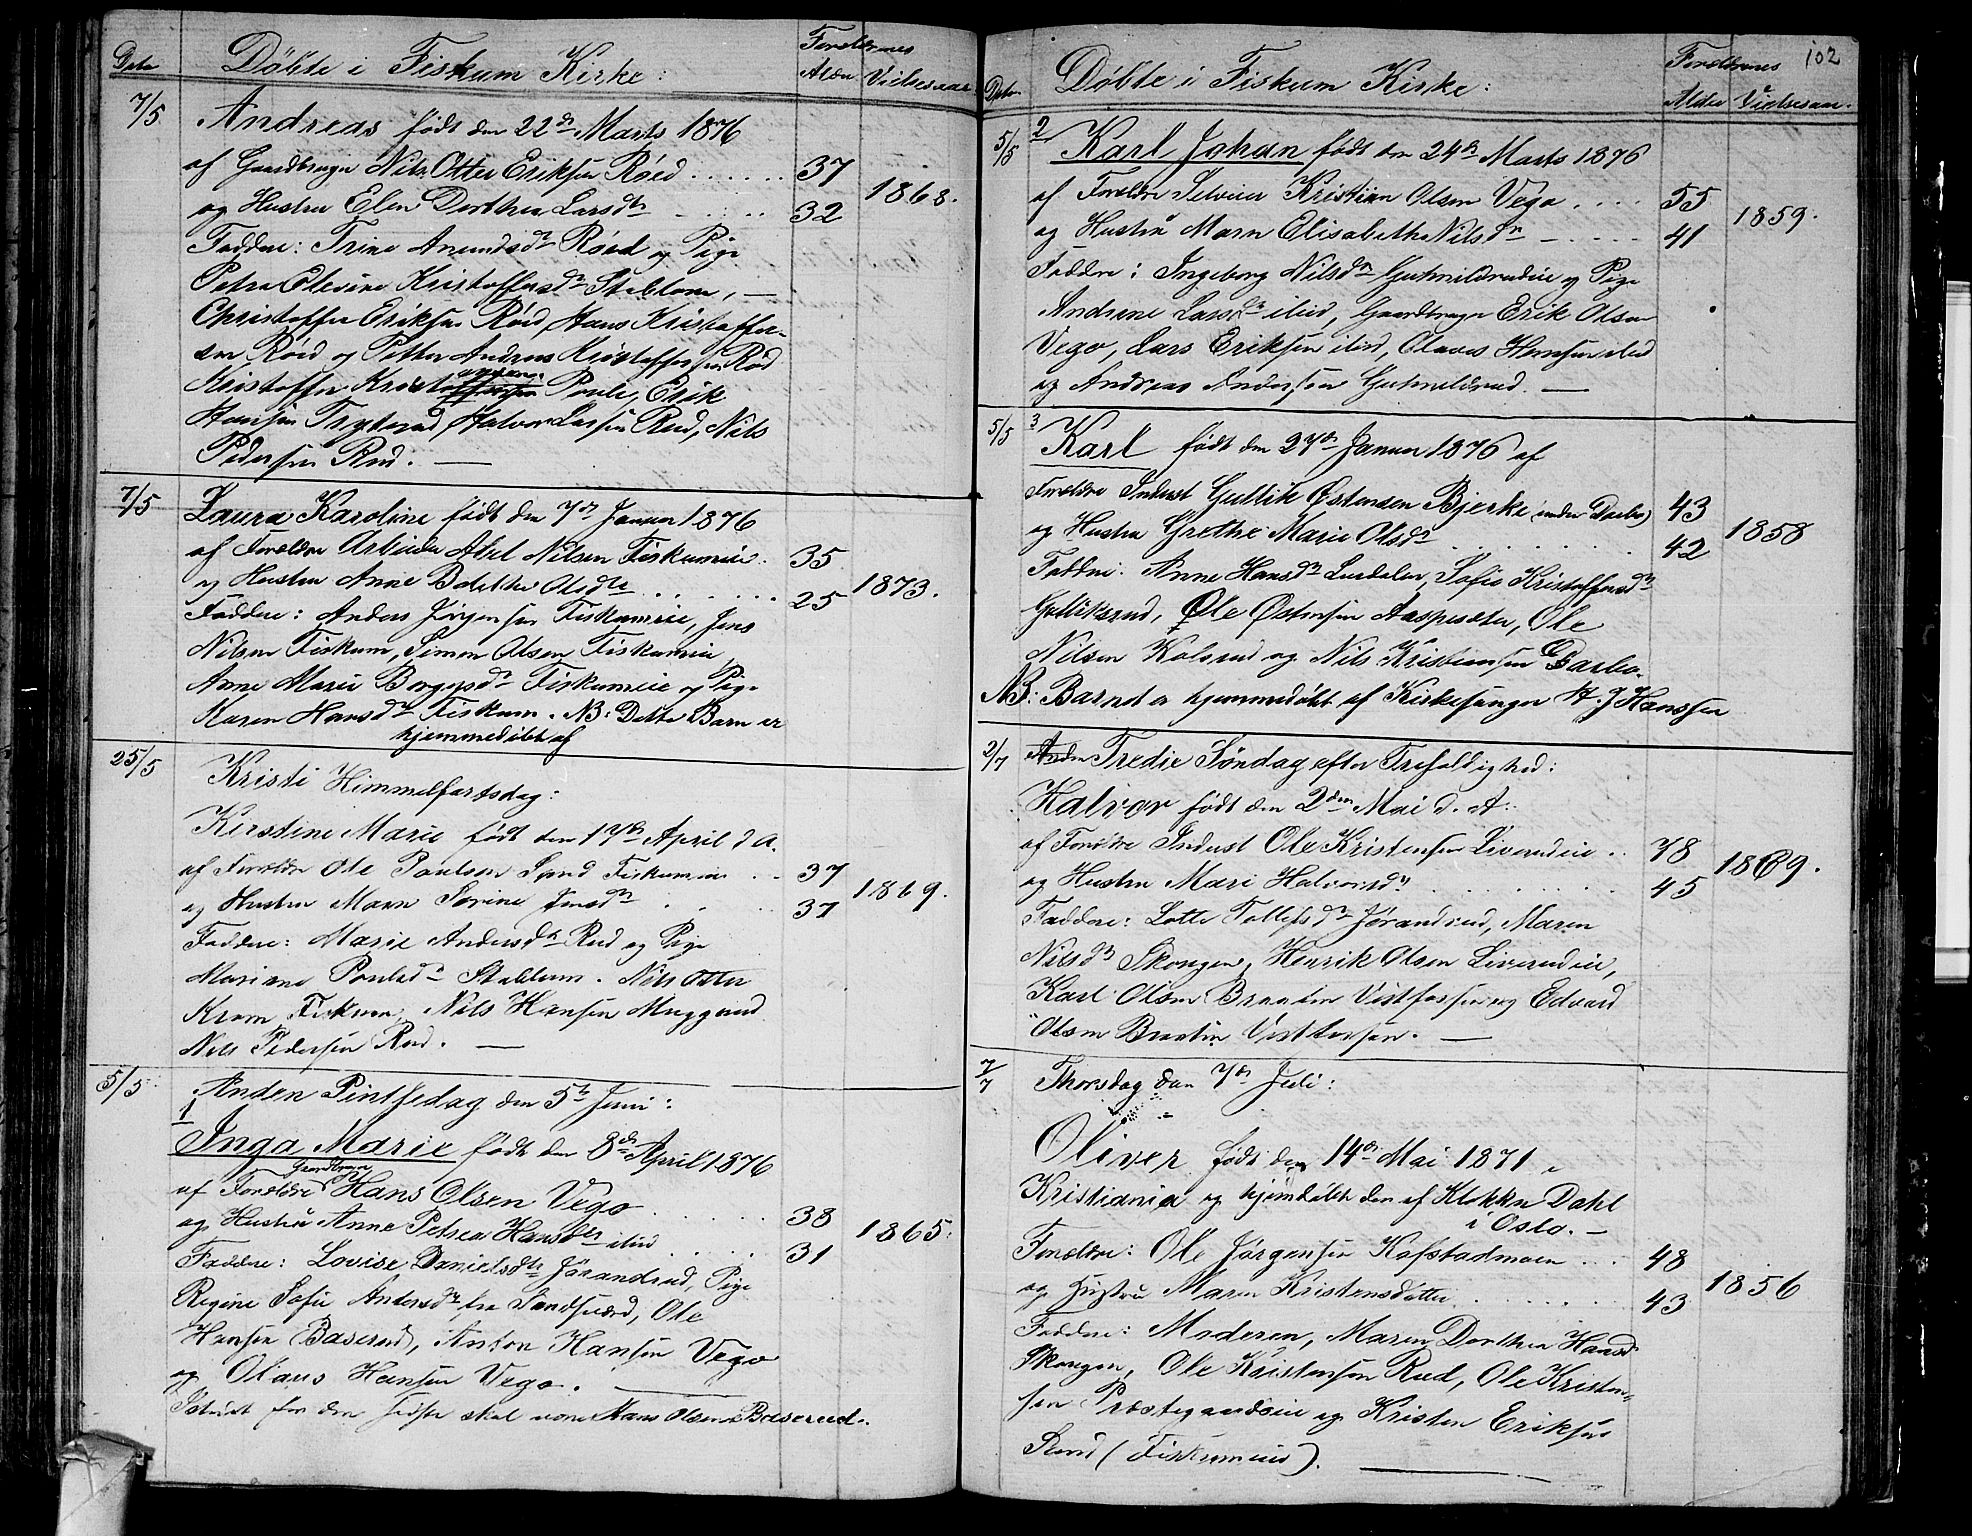 Dato
Döbte i Fiskum Kirke:
Forældrenes
Alder Vielsesaar
7/5
Andreas født den 22de Marts 1876
af Gaardbruger Nils Otter Eriksen Röed . . . . . . 37
og Hustru Elen Dorthea Larsdtr 32 1868.
Faddere: Trine Amundsdtr Röed og Pige
Petra Olevine Kristoffersdtr Stablum, —
Christoffer Eriksen Röed, Hans Kristoffer-
sen Röed og Petter Andreas Kristoffersen Röd
Kristoffer Poule, Erik
Hansen Trygterud, Halvor Larsen Rud, Nils
Pedersen Rud. —
7/5
Laura Karoline født den 7de Januar 1876
af Forældre Arbeider Abel Nilsen Fiskumeie . 35
og Hustru Anne Bolette Olsdtr . . . . . 25 1873.
Faddere: Anders Jörgensen Fiskumeie, Jens
Nilsen Fiskum, Simen Olsen Fiskumeie,
Anne Marie Borgersdtr Fiskumeie og Pige
Karen Hansdtr Fiskum. NB: Dette Barn er
hjemmedöbt af
25/5
Kristi Himmelfartsdag:
Kirstine Marie født den 17de April d A.
af Forældre Ole Paulsen Sand Fiskumeie . . 37
og Hustru Maren Sørine Jensdtr . . . 37 1869.
Faddere: Marie Andersdtr Rud og Pige
Mariane Paulsdtr Stablum. Nils Otter
Krom Fiskum, Nils Hansen Muggerud
Nils Pedersen Rud. —
5/5
Anden Pintsedag den 5te Juni:
1
Inga Marie født den 8de April 1876
Gaardbruger
af Forældre Hans Olsen Vego . . . . . . 38
og Hustru Anne Petrea Hansdtr ibid . . . . 31 1865.
Faddere: Lovise Danielsdtr Jörandrud, Pige
Regine Sofie Andersdtr fra Sandsværd, Ole
Hansen Baserud, Anton Hansen Vego
og Olaus Hansen Vego. —
Istedet for den sidste skal være Hans Olsen Baserud.
102
Dato
Döbte i Fiskum Kirke:
Forældrenes
Alder Vielsesaar.
5/5 2
Karl Johan født den 24de Marts 1876
af Forældre Selveier Kristian Olsen Vego . . . . 55
og Hustru Maren Elisabeth Nilsdtr — . . . . 41 1859.
Faddre: Ingeborg Nilsdtr Gutmildrudeie og Pige
Andrine Larsdtr ibid, Gaardbruger Erik Olsen
Vego, Lars Eriksen ibid, Olaves Hansen ibid
og Andreas Andersen Gutmildrud. —
5/5 3
Karl født den 27de Januar 1876 af
Forældre Inderst Gullik Østensen Bjerke (under Darbo) 43
og Hustru Grethe Marie Olsdtr . . . . . . . 42 1858
Faddre: Anne Hansdtr Lurdalen, Sofie Kristoffersdtr
Gulliksrud, Ole Østensen Aaspesæter, Ole
Nilsen Kolsrud og Nils Kristiansen Darbo.
NB: Barnet er hjemmedöbt af Kirkesanger H. J Hanssen
2/7
Anden Tredie Søndag efter Trefoldighed:
Halvor født den 2den Mai d. A:
af Forældre Inderst Ole Kristensen Liverudeie . . 78
og Hustru Mari Halvorsdtr . . . . . . . 45 1869.
Faddere: Lotte Tollefsdtr Jörandrud, Maren
Nilsdtr Skougen, Henrik Olsen Liverudeie,
Karl Olsen Braaten Vestfossen og Edvard
Olsen Braaten Vestfossen. —
7/7
Thorsdag den 7de Juli:
Oliver født den 14de Mai 1871 i
Kristiania og hjemdøbt den af Klokker Dahl
i Oslo. —
Forældre: Ole Jørgensen Kofstadmoen . . . 48
og Hustru Maren Kristensdatter . . . . . . 43 1856
Faddere: Moderen, Maren Dorthea Hansd
Skougen, Ole Kristensen Rud, Ole Kristen-
sen Præstegaardseie og Kristen Eriksen
Sand (Fiskumeie). —